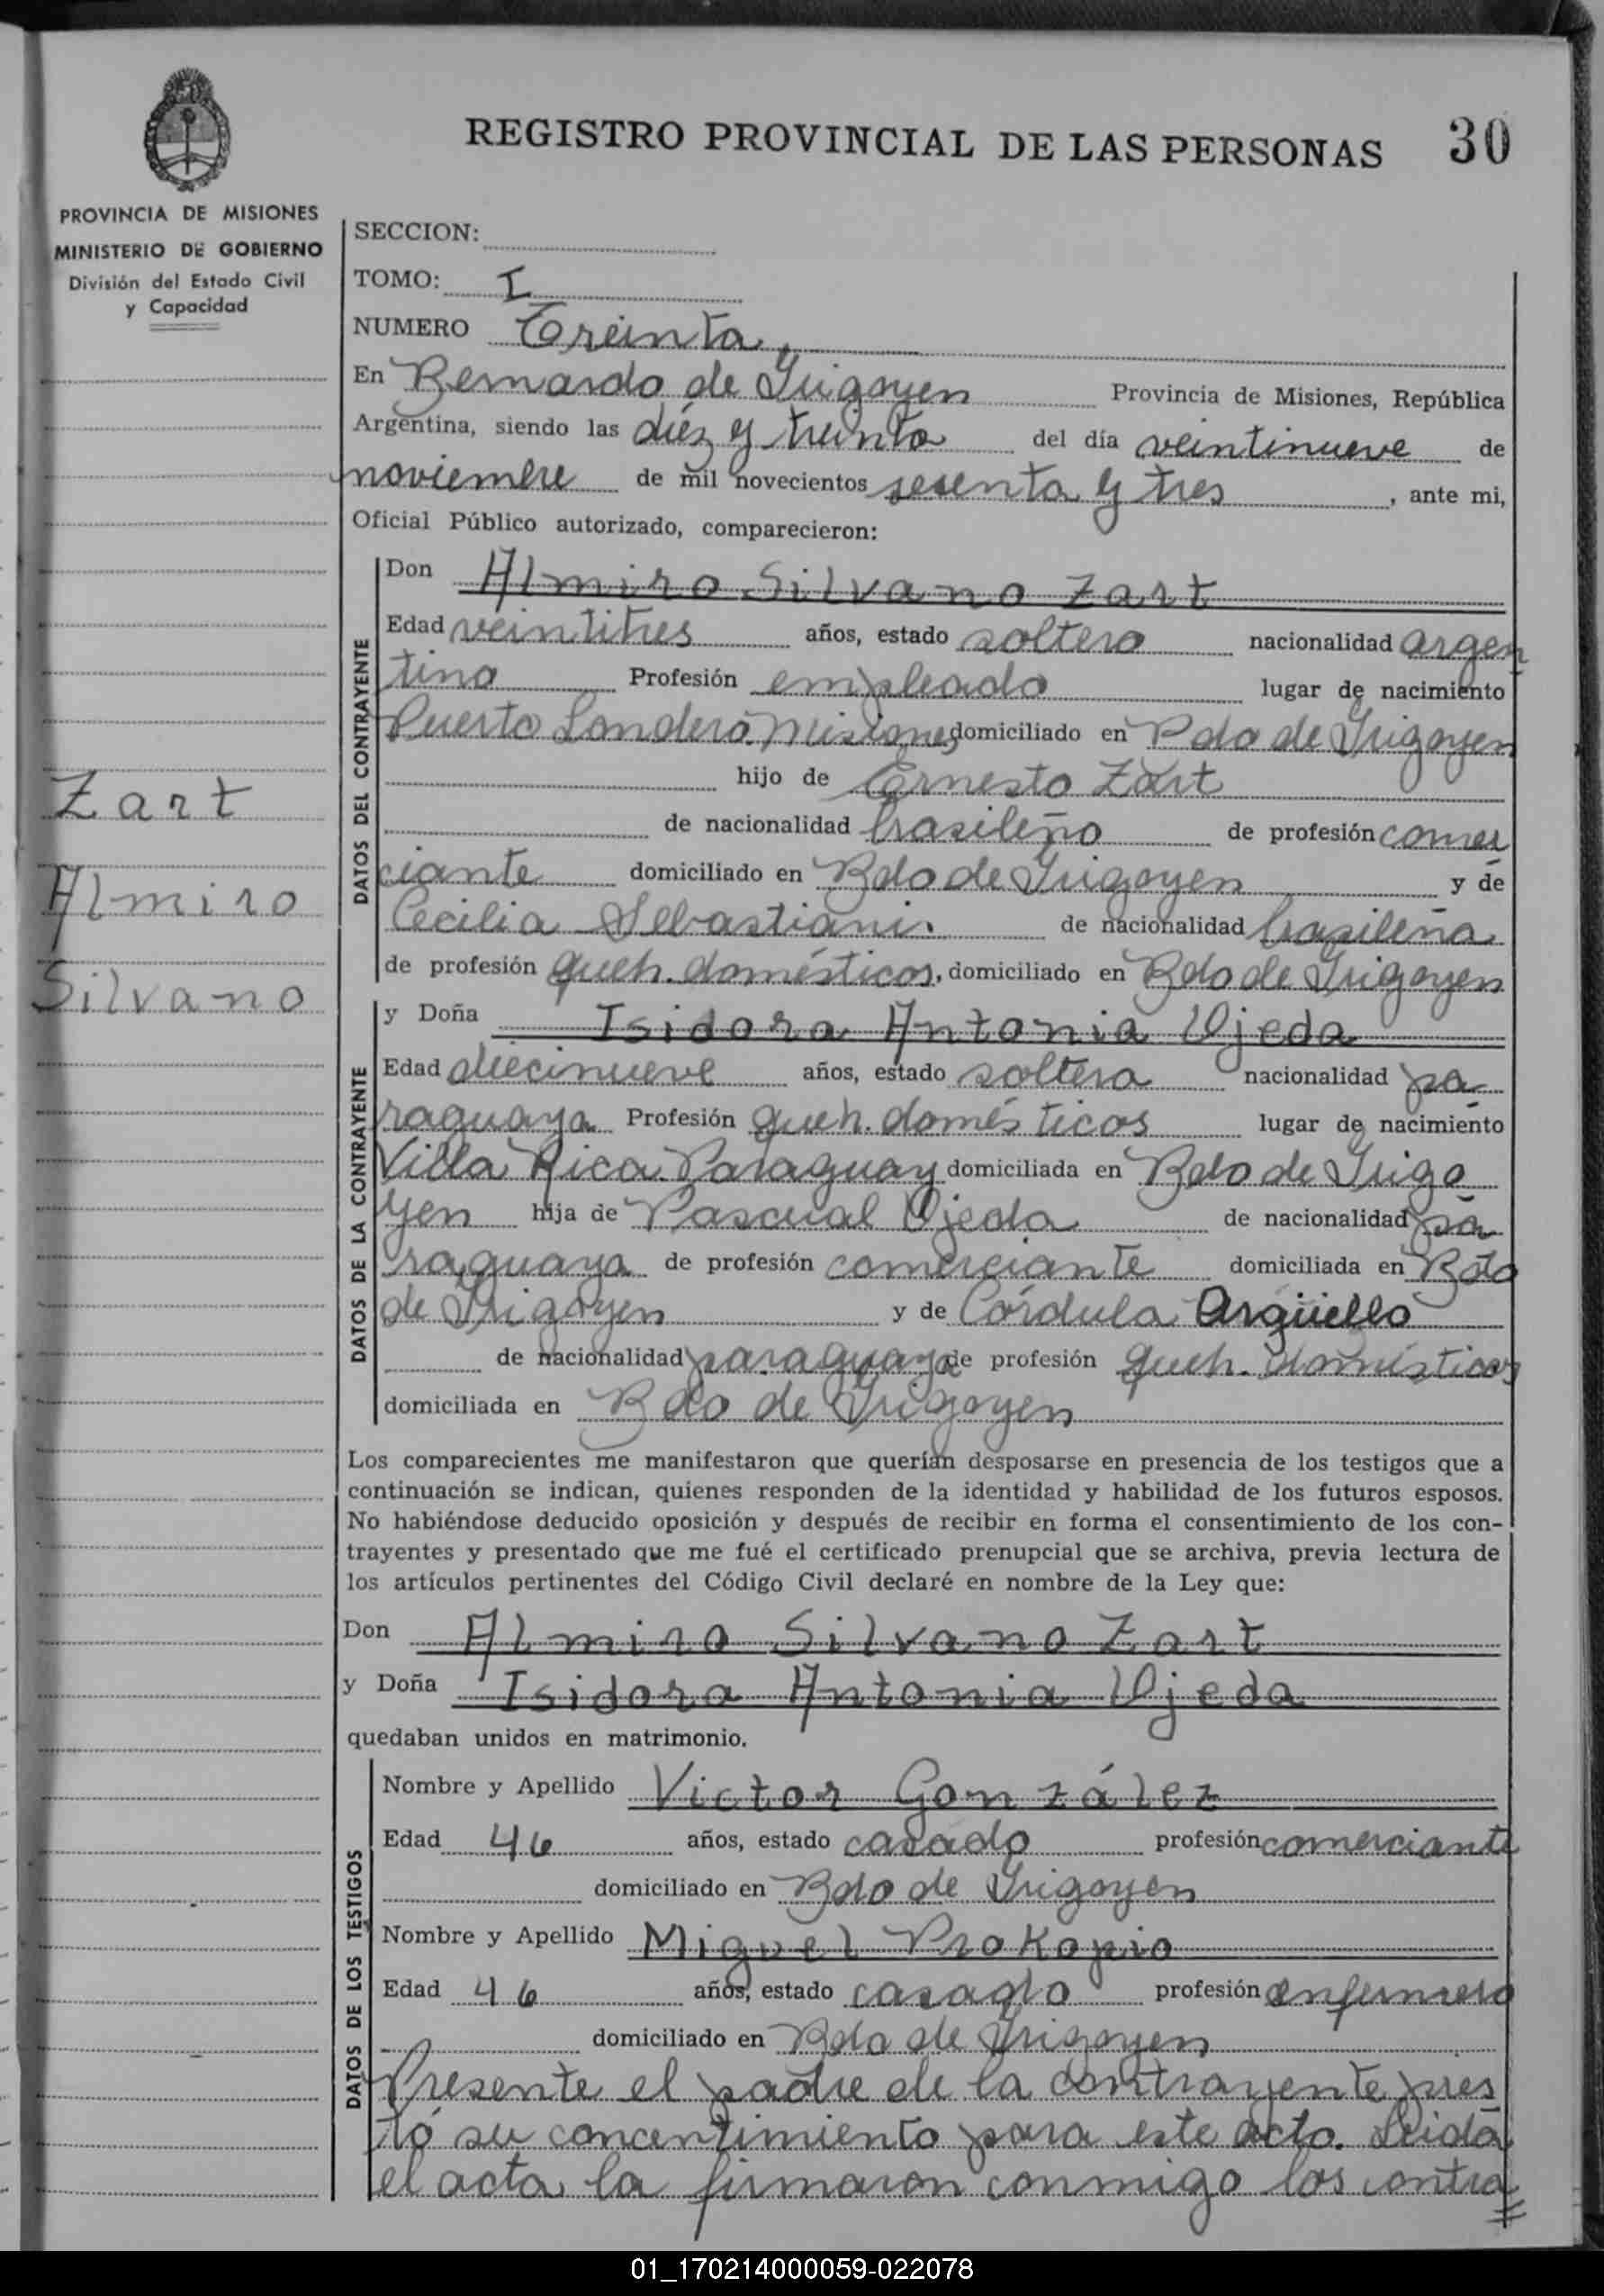 REGISTRO PROVINCIAL DE LAS PERSONAS 30
PROVINCIA DE MISIONES
MINISTERIO DE GOBIERNO
División del Estado Civil
y Capacidad
Zart
Almiro
Silvano
SECCION:
TOMO: I
NUMERO Treinta,
En Bernardo de Irigoyen Provincia de Misiones, República
Argentina, siendo las diéz y treinta del día veintinueve de
noviembre de mil novecientos sesenta y tres, ante mi,
Oficial Público autorizado, comparecieron:
DATOS DEL CONTRAYENTE
Don Almiro Silvano Zart
Edad veintitres años, estado soltero nacionalidad argen
tino Profesión empleado lugar de nacimiento
Puerto Londero. Misiones domiciliado en Bdo de Irigoyen
hijo de Ernesto Zart
de nacionalidad brasileño de profesión comer
ciante domiciliado en Bdo de Irigoyen y de
Cecilia Sebastiani. de nacionalidad brasileña
de profesión queh. domésticos, domiciliado en Bdo de Irigoyen
DATOS DE LA CONTRAYENTE
y Doña Isidora Antonia Ojeda
Edad diecinueve años, estado soltera nacionalidad pa
raguaya Profesión queh. domésticos lugar de nacimiento
Villa Rica. Paraguay domiciliada en Bdo de Irigo
yen hija de Pascual Ojeda de nacionalidad pa
raguaya de profesión comerciante domiciliada en Bdo
de Irigoyen y de Córdula Argüello
de nacionalidad paraguaya de profesión queh. domésticos
domiciliada en Bdo de Irigoyen
Los comparecientes me manifestaron que querían desposarse en presencia de los testigos que a
continuación se indican, quienes responden de la identidad y habilidad de los futuros esposos.
No habiéndose deducido oposición y después de recibir en forma el consentimiento de los con-
trayentes y presentado que me fué el certificado prenupcial que se archiva, previa lectura de
los artículos pertinentes del Código Civil declaré en nombre de la Ley que:
Don Almiro Silvano Zart
y Doña Isidora Antonia Ojeda
quedaban unidos en matrimonio.
DATOS DE LOS TESTIGOS
Nombre y Apellido Victor González
Edad 46 años, estado casado profesión comerciante
domiciliado en Bdo de Irigoyen
Nombre y Apellido Miguel Prokopio
Edad 46 años, estado casado profesión enfermero
domiciliado en Bdo de Irigoyen
Presente el padre de la contrayente pres
tó su concentimiento para este acto. Leida
el acta la firmaron conmigo los contra
01_170214000059-022078